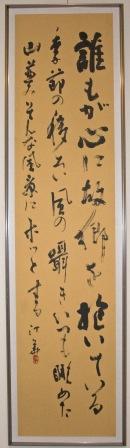 誰もが心に故郷を抱いている
季節の移ろい風の囁きいつも眺めた
山並そんな風景にホッとする